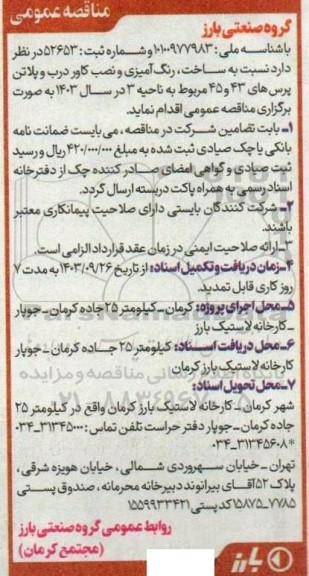 مناقصه عمومی
گروه صنعتی بارز
با شناسه ملی: ۱۰۱۰۰۹۷۷۹۸۳ و شماره ثبت: ۵۲۶۵۳ در نظر
دارد نسبت به ساخت، رنگ آمیزی و نصب کاور درب و پلاتن
پرس های ۴۳ و ۴۵ مربوط به ناحیه ۳ در سال ۱۴۰۳ به صورت
برگزاری مناقصه عمومی اقدام نماید.
۱- بابت تضامین شرکت در مناقصه، می بایست ضمانت نامه
بانکی یا چک صیادی ثبت شده به مبلغ ۴۲۰/۰۰۰/۰۰۰ ریال و رسید
ثبت صیادی و گواهی امضای صادر کننده چک از دفترخانه
اسناد رسمی به همراه پاکت دربسته ارسال گردد.
۲- شرکت کنندگان بایستی دارای صلاحیت پیمانکاری معتبر
باشند.
۳- ارائه صلاحیت ایمنی در زمان عقد قرارداد الزامی است.
۴- زمان دریافت و تکمیل اسناد: از تاریخ ۱۴۰۳/۰۹/۲۶ به مدت ۷
روز کاری قابل تمدید.
۵- محل اجرای پروژه: کرمان - کیلومتر ۲۵ جاده کرمان - جوپار
- کارخانه لاستیک بارز
۶- محل دریافت اسناد: کیلومتر ۲۵ جاده کرمان - جوپار
کارخانه لاستیک بارز کرمان
۷- محل تحویل اسناد:
شهر کرمان - کارخانه لاستیک بارز کرمان واقع در کیلومتر ۲۵
جاده کرمان - جوپار دفتر حراست تلفن تماس: ۳۱۳۴۵۰۰۰-۰۳۴
* ۳۱۳۴۵۶۰۸-۰۳۴
تهران - خیابان سهروردی شمالی، خیابان هویزه شرقی،
پلاک ۵۲ آقای بیرانوند دبیرخانه محرمانه، صندوق پستی
۷۷۸۵-۱۵۸۷۵ کد پستی ۱۵۵۹۹۳۳۴۲۱
روابط عمومی گروه صنعتی بارز
(مجتمع کرمان)
بارز